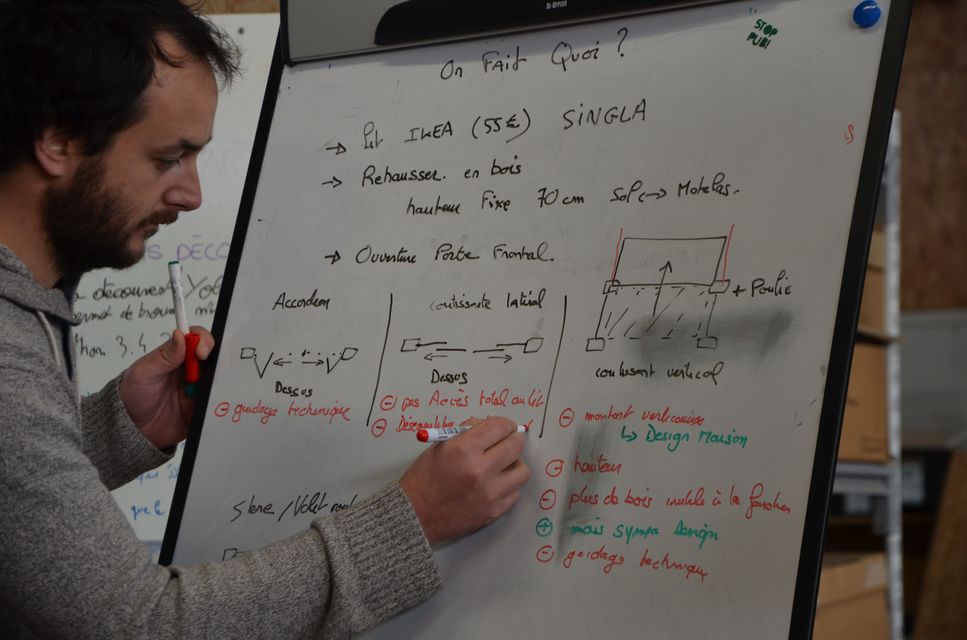 On Fait Quoi ?
STOP PUB!
→ Lit IKEA (55€) SINGLA
→ Rehausser en bois
hauteur Fixe 70 cm Sol ↔ Matelas.
→ Ouverture Porte Frontal.
Accordeon
Dessus
⊖ guidage technique
coulissante latéral
Dessus
⊖ pas Accès total au lit
⊖
+ Poulie
coulissant vertical
⊖ montant verticaux
↳ Design Maison
⊖ hauteur
⊖ plus de bois inutile à la fonction
⊕ mais sympa Design
⊖ guidage technique
Store / Volet
DÉCO
decouvert
3.4
que le